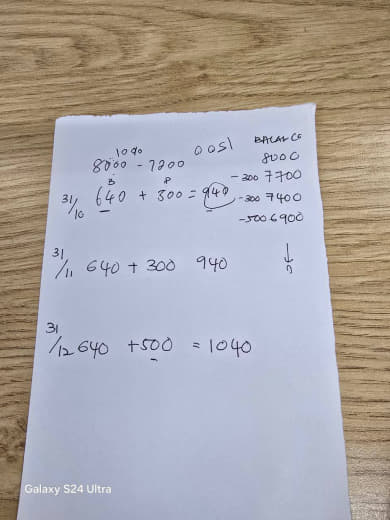 10%
8000 - 7200
0051
BALANCE
8000
- 300 7700
- 300 7400
- 500 6900
31/10 640 + 300 = 940
31/11 640 + 300 940
31/12 640 + 500 = 1040
Galaxy S24 Ultra